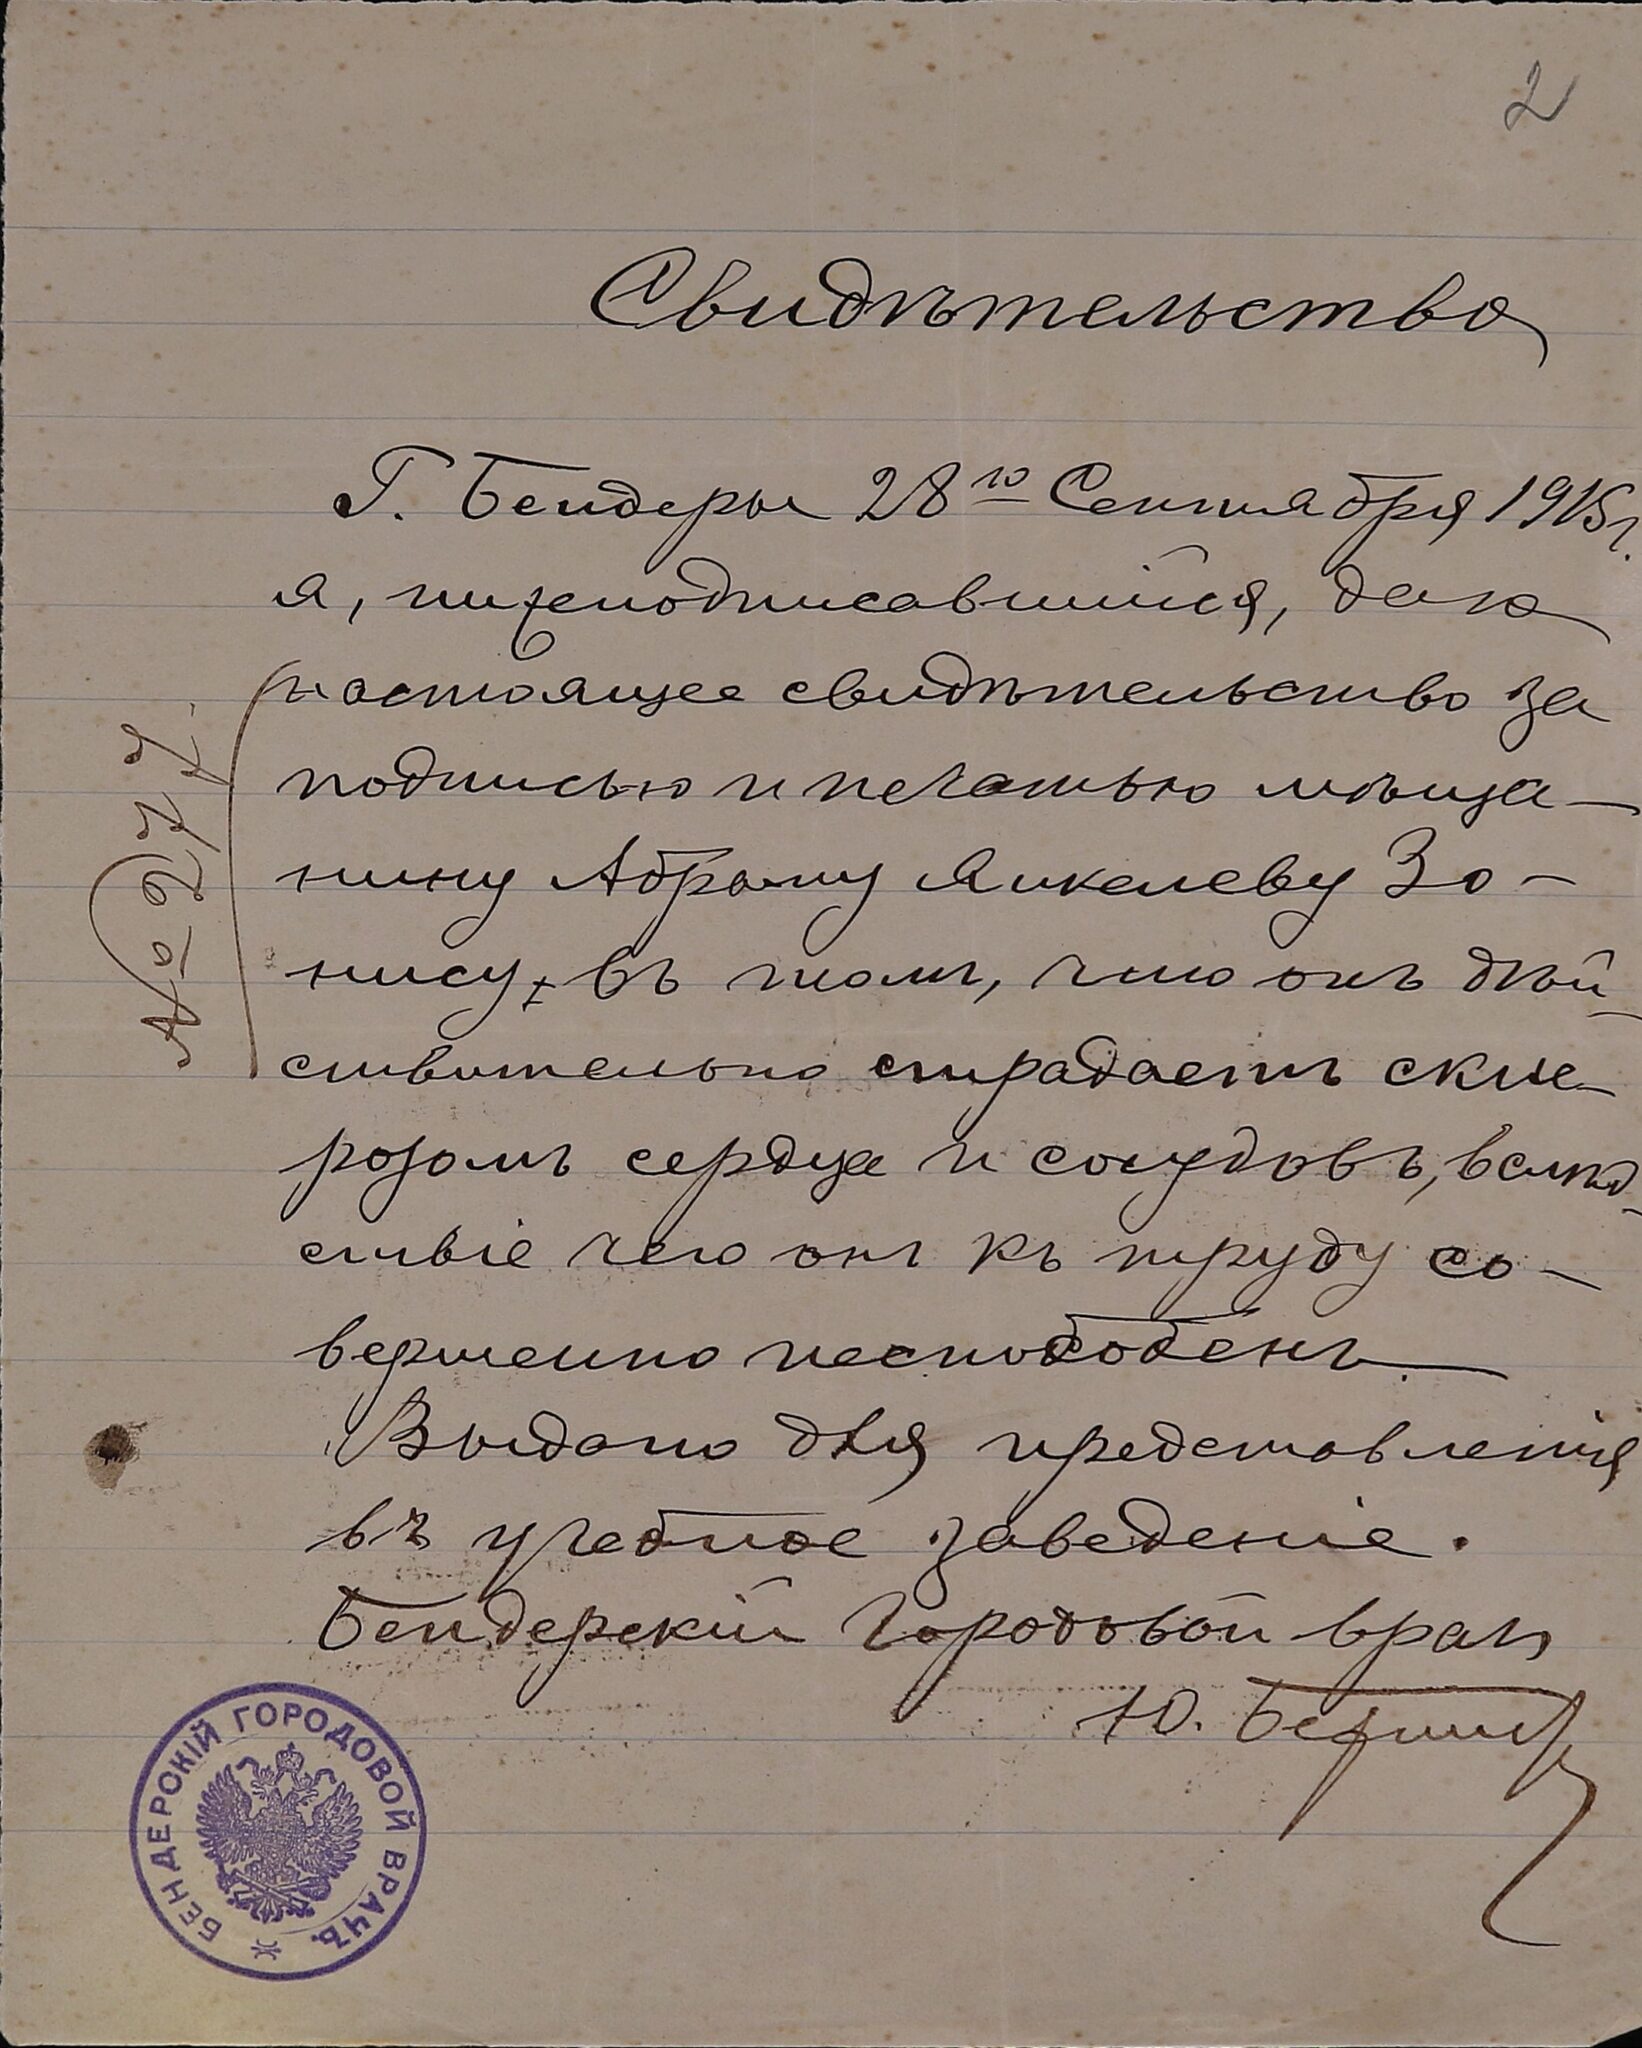 2
Свидѣтельство
Г. Бендеры 28го Сентября 1915 г.
я, нижеподписавшійся, даю
настоящее свидѣтельство за
подписью и печатью мѣща-
нину Абраму Янкелеву Зо-
нису, въ томъ, что онъ дѣй-
ствительно страдаетъ скле-
розомъ сердца и сосудовъ, вслѣд-
ствіе чего онъ къ труду со-
вершенно неспособенъ.
Выдано для представленія
въ учебное заведеніе.
Бендерскій Городовой врачъ
Ю.
№ 977.
БЕНДЕРСКІЙ ГОРОДОВОЙ ВРАЧЪ.